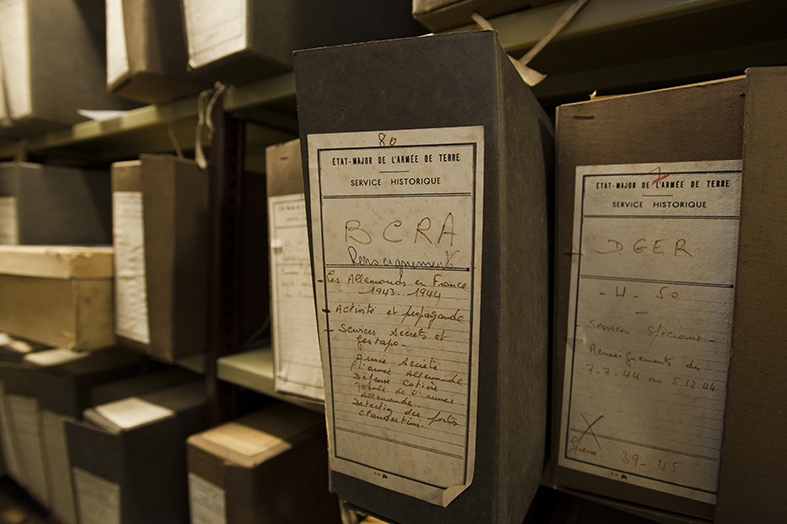 80
ÉTAT-MAJOR DE L'ARMÉE DE TERRE
SERVICE HISTORIQUE
BCRA
Renseignements
- Les Allemands en France
1943-1944
- Activité et propagande
- Services Secrets et
gestapo -
Armée Secrète
l'armée Allemande
Défense Cotière
de l'armée
allemande.
Détection des postes
clandestins.
ÉTAT-MAJOR DE L'ARMÉE DE TERRE
SERVICE HISTORIQUE
DGER
- 4 - 50
Services Spéciaux -
Renseignements du
7.7.44 au 5.12.44
X
Guerre 39-45